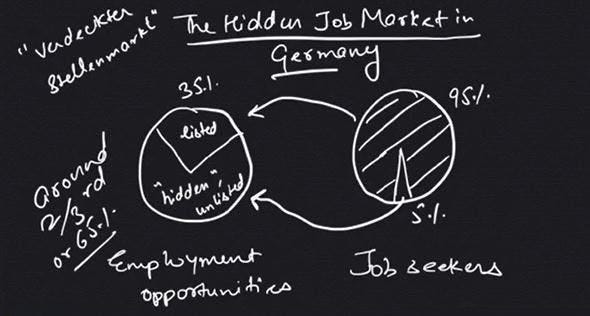 "verdeckter
Stellenmarkt"
The Hidden Job Market in
Germany
35%
listed
"hidden",
unlisted
Around
2/3rd
or 65%
Employment
opportunities
95%
5%
Job seekers